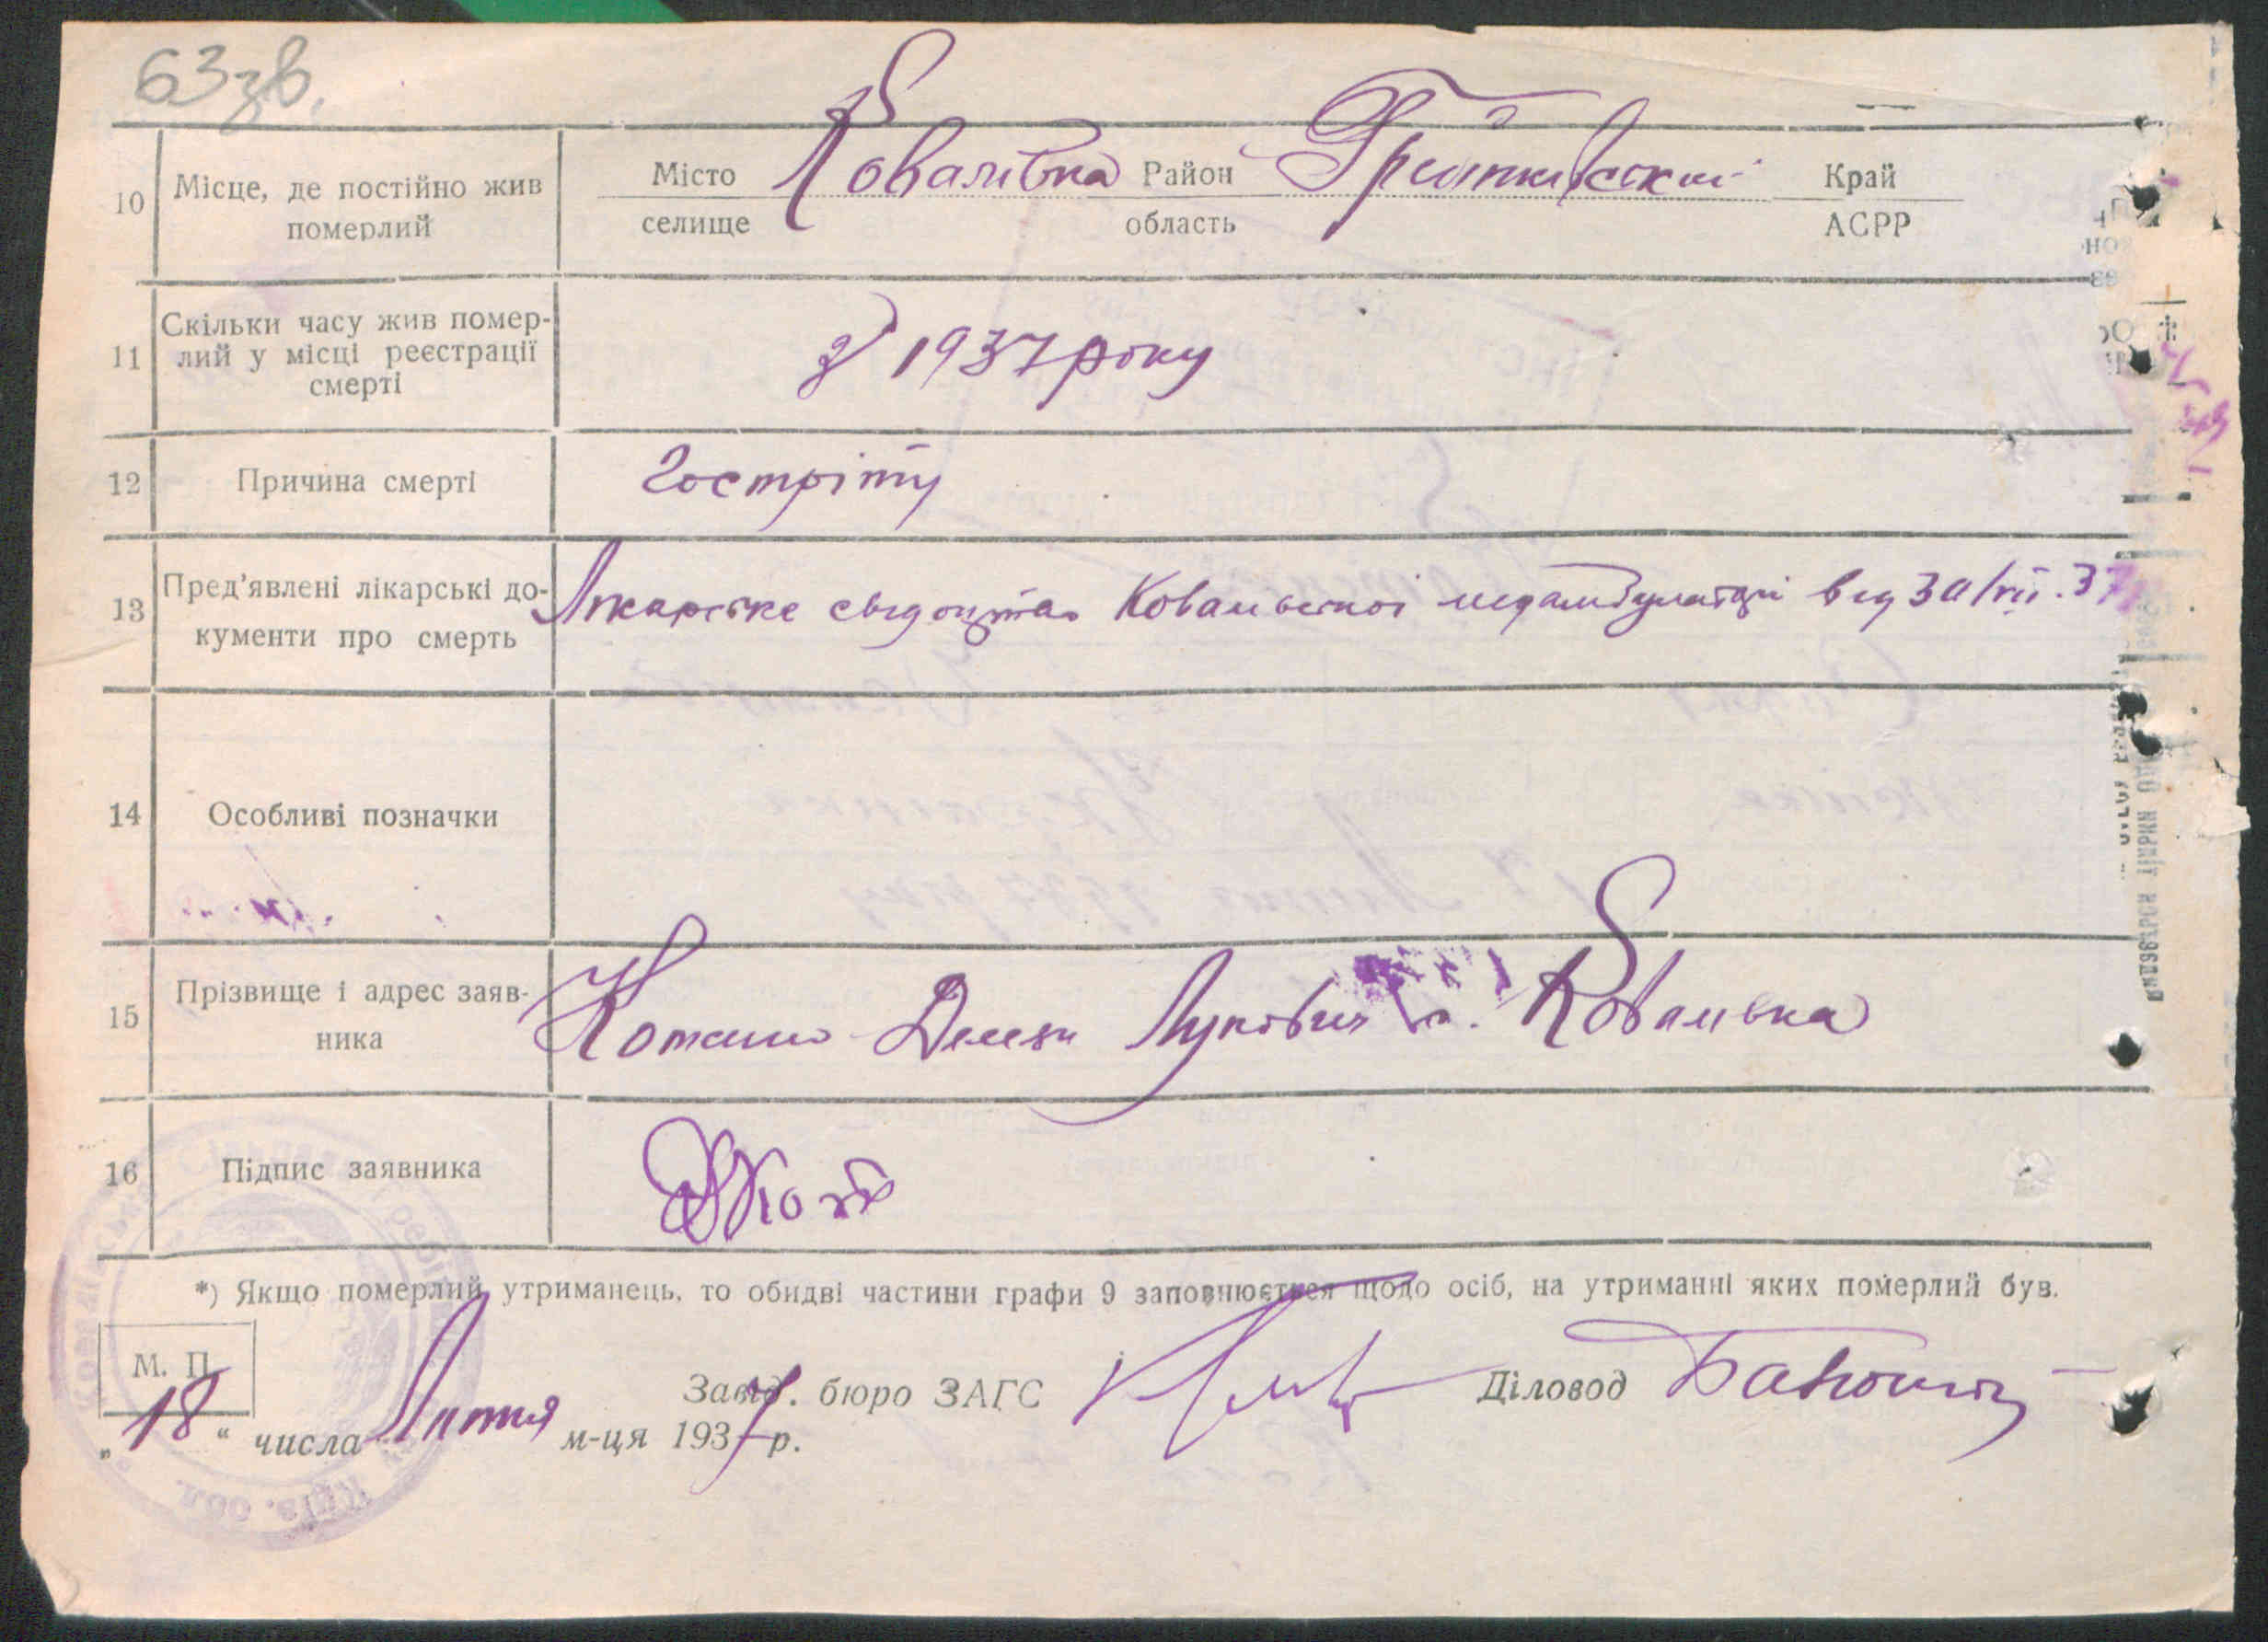 63зв.
10 Місце, де постійно жив померлий
Місто Ковалівка Район Гребінківський Край
селище область АСРР
11 Скільки часу жив помер-
лий у місці реєстрації
смерті
з 1937 року
12 Причина смерті Гострiту
13 Пред'явлені лікарські до-
кументи про смерть
Лікарське свідоцтво Ковалівської медамбулаторії від 30/VII.37
14 Особливі позначки
15 Прізвище і адрес заяв-
ника
Лукович с. Ковалівка
16 Підпис заявника
*) Якщо померлий утриманець, то обидві частини графи 9 заповнюється щодо осіб, на утриманні яких померлий був.
М. П.
Завід. бюро ЗАГС Діловод
„18“ числа Липня м-ця 1937 р.
Київ. обл.